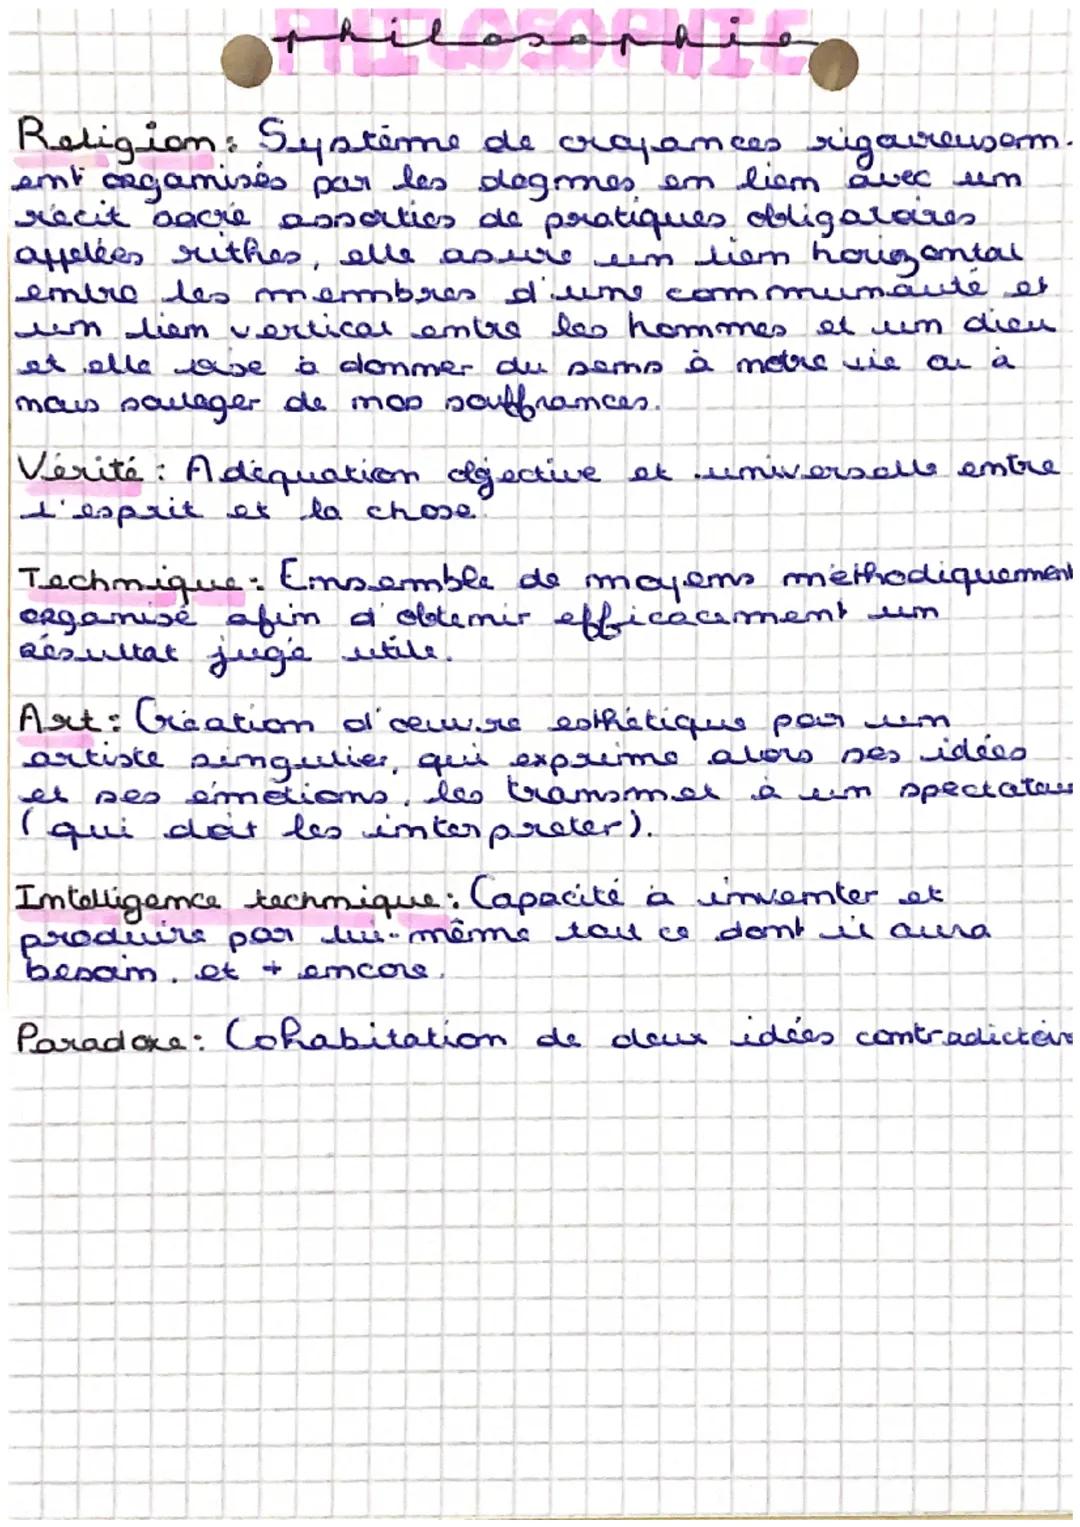 philosophie
PHILOSOPHIE
Religion: Système de croyances rigoureusem-
ent organisés par les dogmes en lien avec un
récit sacré assorties de pratiques obligatoires
appelées rithes, elle assure un lien horizontal
entre les membres d'une communauté et
un lien vertical entre les hommes et un dieu
et elle vise à donner du sens à notre vie ou à
nous soulager de nos souffrances.
Vérité: Adéquation objective et universelle entre
l'esprit et la chose.
Technique: Ensemble de moyens méthodiquement
organisé afin d'obtenir efficacement un
résultat jugé utile.
Art: Création d'oeuvre esthétique par un
artiste singulier, qui exprime alors ses idées
et ses émotions, les transmet à un spectateur
(qui doit les interpreter).
Intelligence technique: Capacité à inventer et
produire par lui-même tout ce dont il aura
besoin, et + encore.
Paradoxe: Cohabitation de deux idées contradictoir